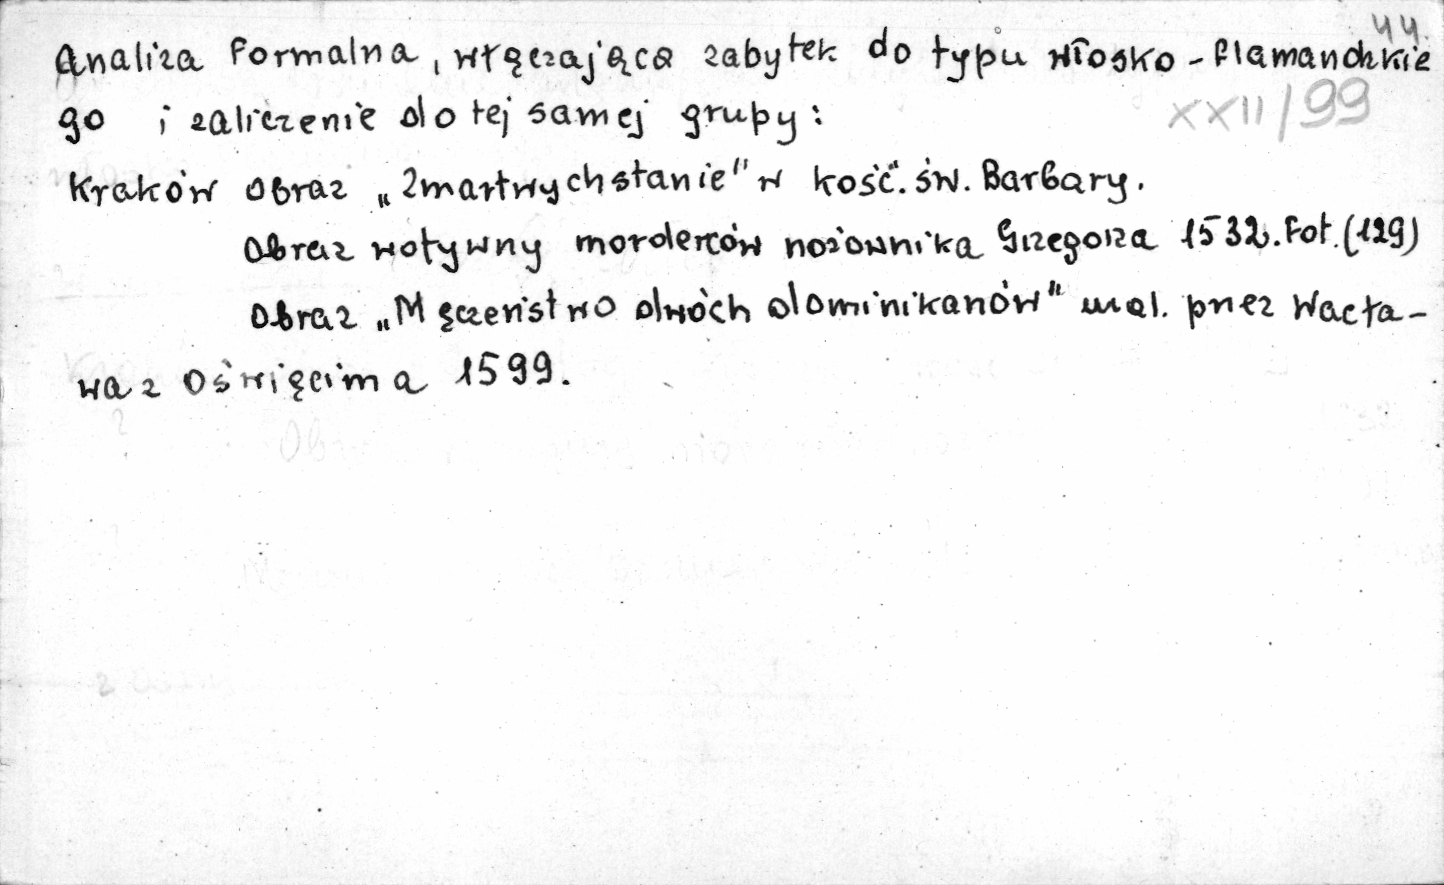 44.
Analiza formalna, włączająca zabytek do typu włosko-flamandzkie
go i zaliczenie do tej samej grupy:
XXII/99
Kraków obraz „Zmartwychstanie" w kość. św. Barbary.
Obraz wotywny morderców nożownika Grzegorza 1532. Fot. (129)
Obraz „Męczeństwo dwóch dominikanów" mal. przez Wacła-
wa z Oświęcima 1599.